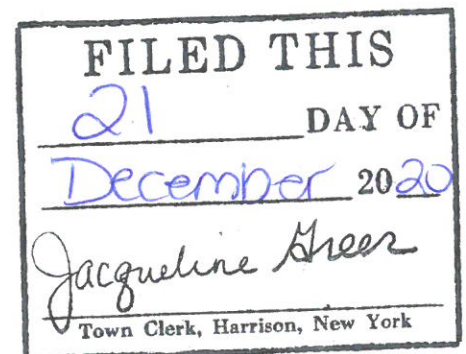 FILED THIS
21 DAY OF
December 2020
Jacqueline Greer
Town Clerk, Harrison, New York